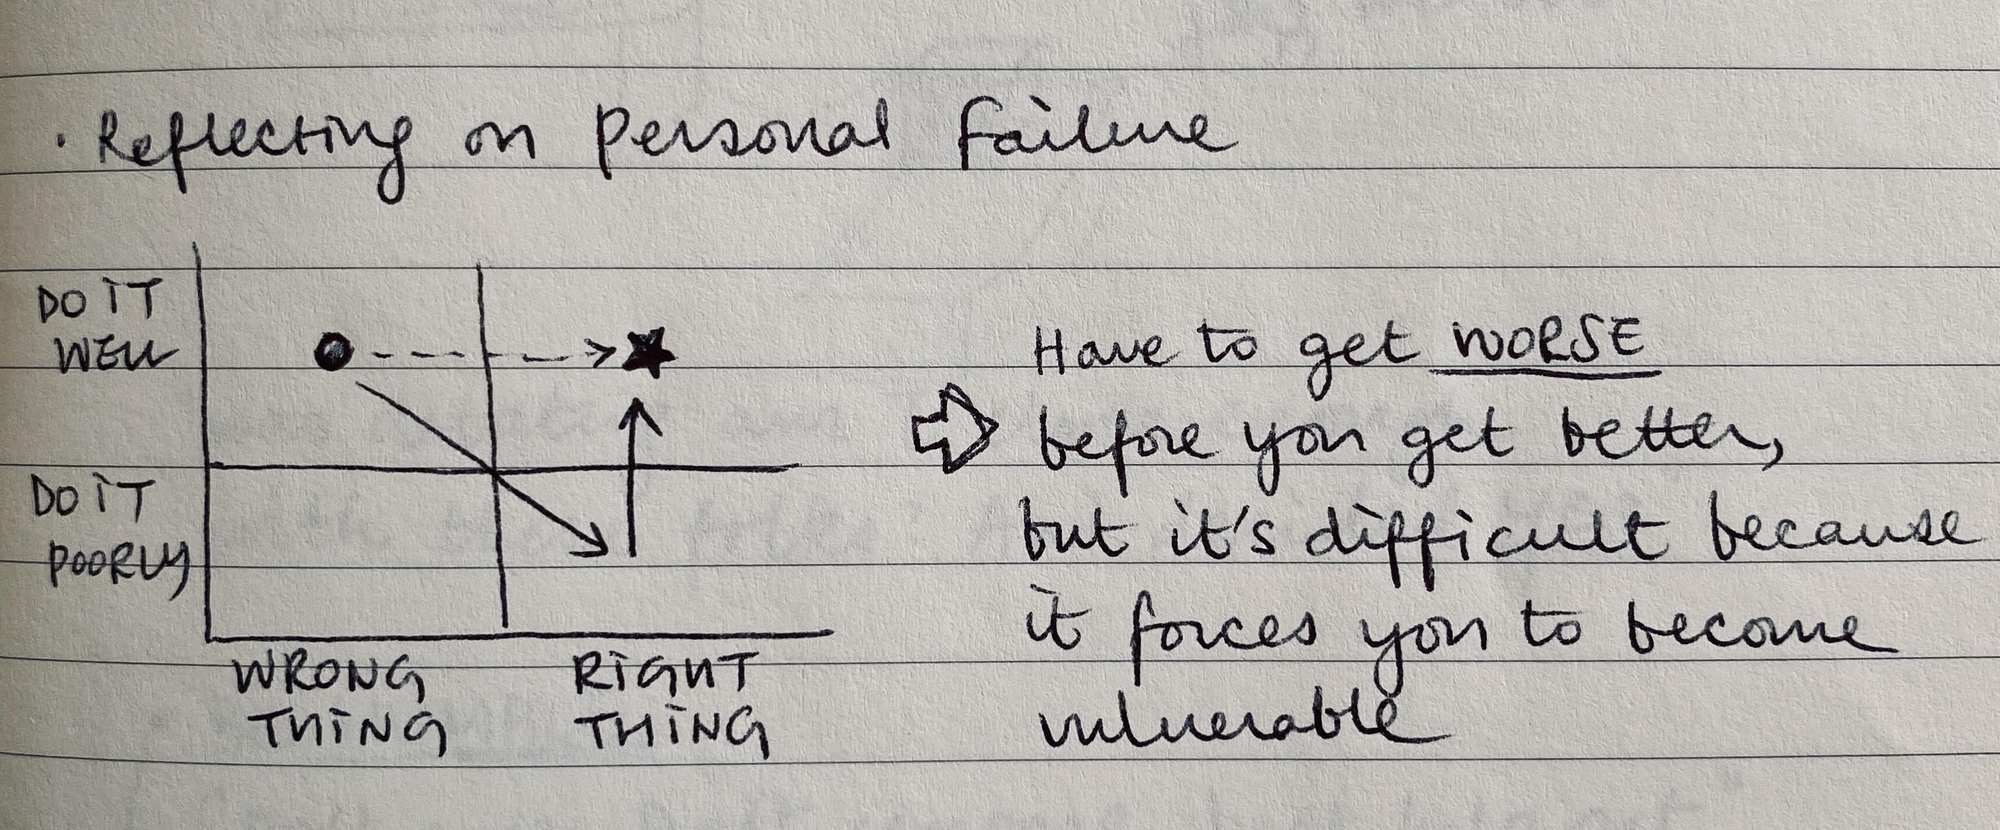 · Reflecting on Personal Failure
DO IT
WELL
DO IT
POORLY
WRONG
THING
RIGHT
THING
Have to get WORSE
before you get better,
but it's difficult because
it forces you to become
vulnerable